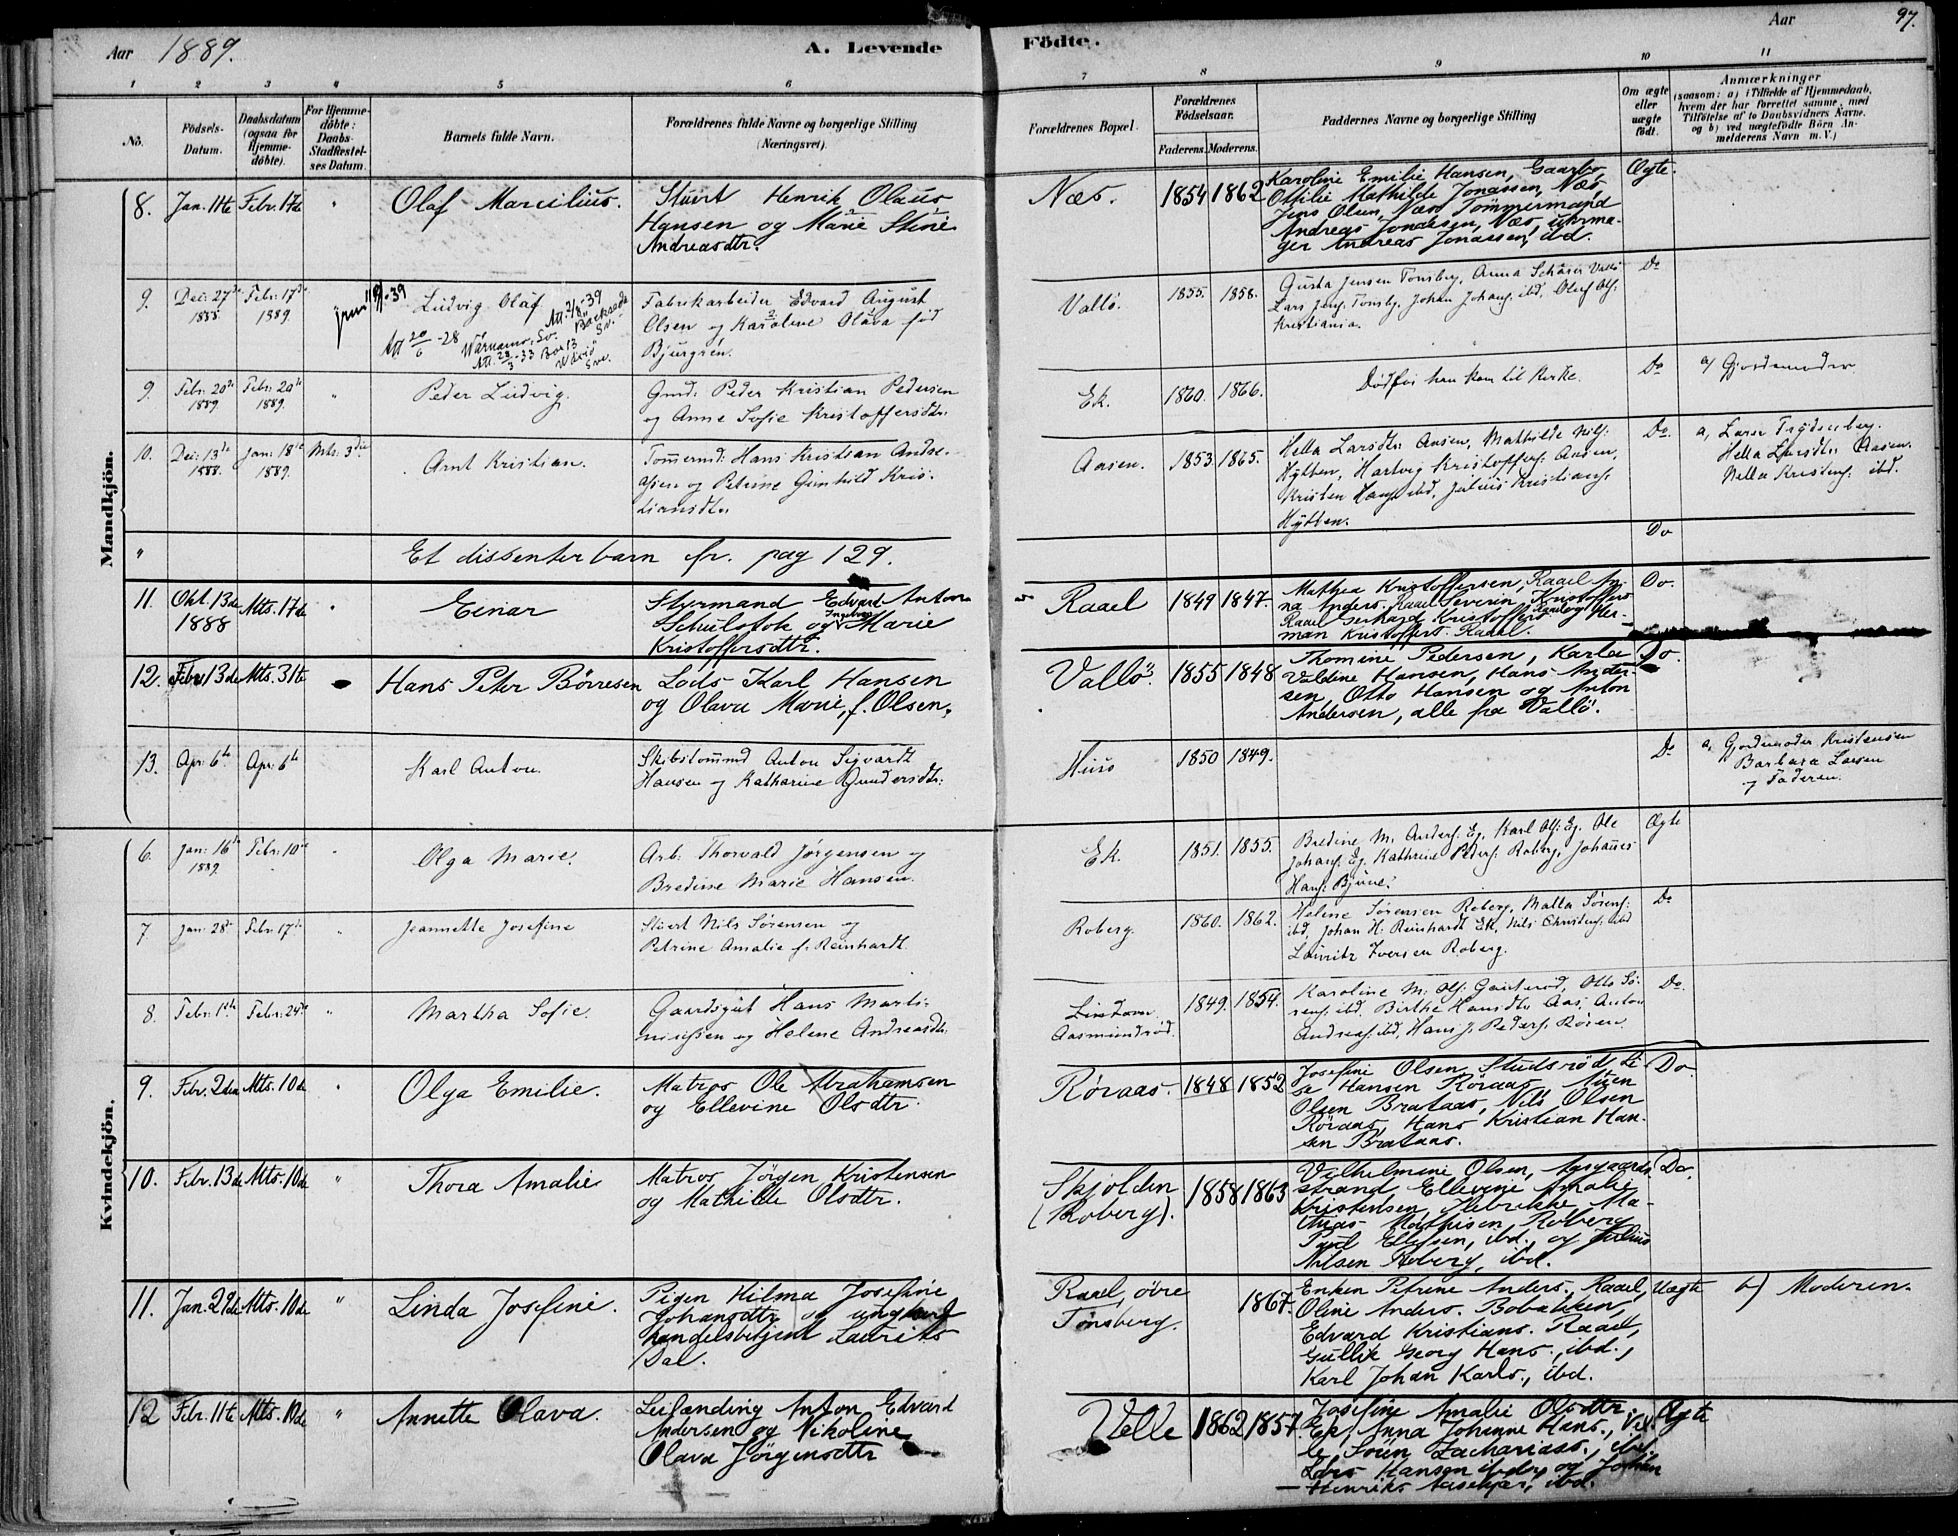 Aar 1889.
A. Levende Födte.
Aar
97.
1 2 3 4 5 6 7 8 9 10 11
No.
Födsels-Datum.
Daabsdatum (ogsaa for Hjemme-döbte).
For Hjemme-döbte: Daabs-Stadfæstel-ses Datum.
Barnets fulde Navn.
Forældrenes fulde Navne og borgerlige Stilling (Næringsvei).
Forældrenes Bopæl.
Forældrenes Födselsaar.
Faderens. Moderens.
Faddernes Navne og borgerlige Stilling
Om ægte eller uægte födt.
Anmærkninger
(saasom: a) i Tilfælde af Hjemmedaab,
hvem der har forrettet samme, med
Tilföielse af to Daabsvidners Navne,
og b) ved uægtefödte Börn An-
melderens Navn m. V.)
Mandkjön.
8. Jan. 11te Febr. 17de " Olaf Marcilius.
Stuert Henrik Olaus
Hansen og Marie Stine
Andreasdtr.
Næs. 1854 1862
Karoline Emilie Hansen, Gaarbo,
Otilie Mathilde Jonassen, Næs
Jens Olsen, Næs Tömmermand
Andreas Jonassen, Næs, uhrma-
ger Andreas Jonassen, ibd.
Ægte.
9. Dec: 27de 1888. Febr: 17de 1889. Ludvig Olaf
Att 20/6 -28 Wärnamo, Sv.
Fabrikarbeider Edvard August
Olsen og Karoline Olava fød
Bjurgrén.
Vallö. 1855. 1858.
Gusta Jensen Tonsberg, Anna Schüsir Vallö
Lars Jens: Tonsbg, Johan Johans: ibd, Oluf Ols:
Kristiania.
Do
9. Febr: 20de 1889. Febr: 20de 1889. " Peder Ludvig.
Gmd: Peder Kristian Pedersen
og Anne Sofie Kristoffersdtr:
Ek. 1860. 1866.
Død før han kom til Kirke.
Do a/ Gjordemoder
10. Dec: 13de 1888. Jan: 18de 1889. Mts: 3die Arnt Kristian.
Tømmermd: Hans Kristian Andre-
asen og Petrine Gunhild Kris-
tiansdtr:
Aasen. 1853. 1865.
Hella Larsdtr: Aasen, Mathilde Nils:
Hytten, Hartvig Kristoffers: Aasen,
Kristen Hans: ibd, Julius Kristians:
Hytten.
Do. a, Larse Trydsenberg.
Hella Larsdtr: Aasen.
Nella Kristens: ibd.
" Et dissenterbarn fr. pag 129. Do
11. Okt. 13de 1888 Mts. 17de " Einar
Styrmand Edvard Anton
Schulstok og Ingeborg Marie
Kristoffersdtr.
Raael 1849 1847.
Mathea Kristoffersen, Raael An-
na Anders. Raael Severin Kristoffers
Raael Gerhard Kristoffers. Raael og Her-
man Kristoffers. Raael.
Do.
12. Febr. 13de Mts. 31te Hans Peter Börresen
Lods Karl Hansen
og Olava Marie, f. Olsen.
Vallö. 1855 1848
Thomine Pedersen, Karla
Valdine Hansen, Hans Ander-
sen, Otto Hansen og Anton
Andersen, alle fra Vallö.
Do.
13. Apr: 6te Apr: 6te Karl Anton.
Skibstömmd Anton Sigvardt
Hansen og Katharine Gundersdtr:
Huso 1850 1849.
Do a, Gjordemoder Kristensen
Barbara Larsen
og Faderen.
Kvindekjön.
6. Jan: 16de 1889. Febr: 10de " Olga Marie.
Arb: Thorvald Jørgensen og
Bredine Marie Hansen.
Ek. 1851. 1855.
Bredine M. Anders: Eg, Karl Ols: Eg, Ole
Johans: Eg, Kathrine Peders: Roberg, Johannes
Hans: Bjune.
Ægte
7. Jan: 28de Febr: 17de " Jeannette Josefine
Stuert Nils Sørensen og
Petrine Amalie f: Reinhardt.
Roberg. 1860. 1862.
Helene Sørensen Roberg, Malla Sørens:
ibd, Johan H: Reinhardt Ek, Nils Christens: ibd
Lauritz Iversen Roberg.
Do
8. Febr: 1ste Febr: 24de " Martha Sofie.
Gaardsgut Hans Marti-
niussen og Helene Andreasdtr:
Lindavn. Aasmundrød. 1849. 1854.
Karoline M: Ols: Gauterød, Otto Sø-
rens: ibd, Birthe Hansdtr: Aas, Anton
Andreas: ibd, Hans J. Peders: Roren.
Do.
9. Febr. 2den Mts. 10de " Olga Emilie.
Matros Ole Abrahamsen
og Ellevine Olsdtr.
Röraas. 1848 1852
Josefine Olsen Studsröd, Li-
se Hansen Röraas, Stien
Olsen Brataas, Nils Olsen
Röraas, Hans Kristian Han-
sen Brataas.
Do.
10. Febr. 13de Mts. 10de " Thora Amalie
Matros Jörgen Kristensen
og Mathilde Olsdtr.
Skjolden (Roberg). 1858 1863
Vilhelmine Olsen, Aasgaard-
strand Ellevine Amalie
Kristensen, Ilebrekke, Ma-
thias Mathisen, Roberg
Paul Ellefsen, ibd. og Julius
Nilsen Roberg, ibd.
Do.
11. Jan. 29de Mts. 10de " Linda Josefine.
Pigen Hilma Josefine
Johansdtr og ungkarl
handelsbetjent Laurits
Dal.
Raael, övre Tönsberg. 1867.
Enken Petrine Anders. Raael,
Oline Anders. Bobakken,
Edvard Kristians. Raael,
Gullik Georg Hans., ibd.,
Karl Johan Karls., ibd.
Uægte b) Moderen.
12 Febr. 11te Mts. 10de " Annette Olava.
Leilænding Anton Edvard
Andersen og Nikoline
Olava Jörgensdtr
Velle 1862 1857.
Josefine Amalie Olsdtr.
Ek, Anna Johanne Hans., Vel-
le, Sören Zachariass., ibd.
Lars Hansen ibd., og Johan
Henriks. Aasekjær, ibd.
Ægte